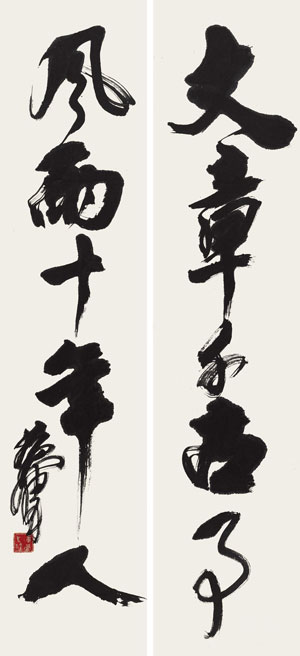 文章千古事
风雨十年人